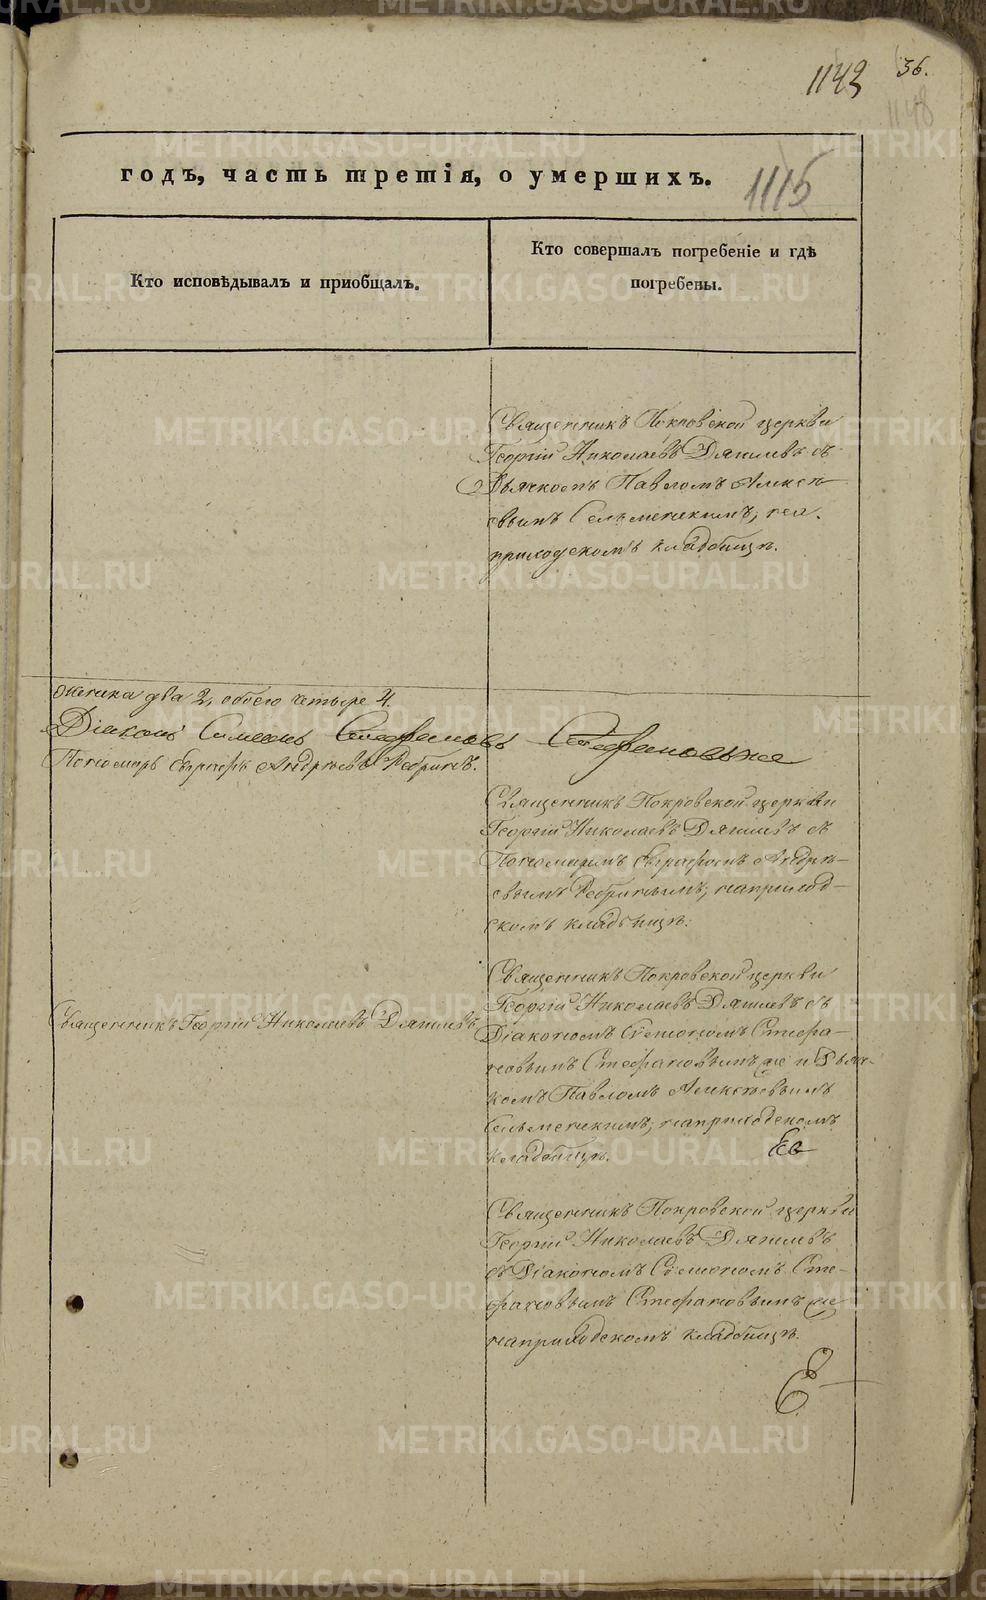 1143 36.
1148
годъ, часть третія, о умершихъ. 1115
Кто исповѣдывалъ и приобщалъ.
Кто совершалъ погребеніе и гдѣ
погребены.
Священникъ Покровской церкви
Георгій Николаевъ Дягилевъ съ
Дьячкомъ Павломъ Алексѣ-
евымъ Сельменскимъ, на
приходскомъ кладбищѣ.
женска два 2, обоего четыре 4.
Діаконъ Симеонъ Стефановъ Стефановыхже
Пономарь Евграфъ Андреевъ Ребринъ.
Священникъ Покровской церкви
Георгій Николаевъ Дягилевъ съ
Пономаремъ Евграфомъ Андрѣ-
евымъ Ребринымъ, на приход-
скомъ кладбищѣ.
Священникъ Покровской церкви
Священникъ Георгій Николаевъ Дягилевъ
Георгій Николаевъ Дягилевъ съ
Діакономъ Сѵмеономъ Стефа-
новымъ Стефановымъ же и Дьяч-
комъ Павломъ Алексѣевымъ
Сельменскимъ, на приходскомъ
кладбищѣ.
Священникъ Покровской церкви
Георгій Николаевъ Дягилевъ
съ Діакономъ Сѵмеономъ Сте-
фановымъ Стефановымъ же
на приходскомъ кладбищѣ.
METRIKI.GASO-URAL.RU